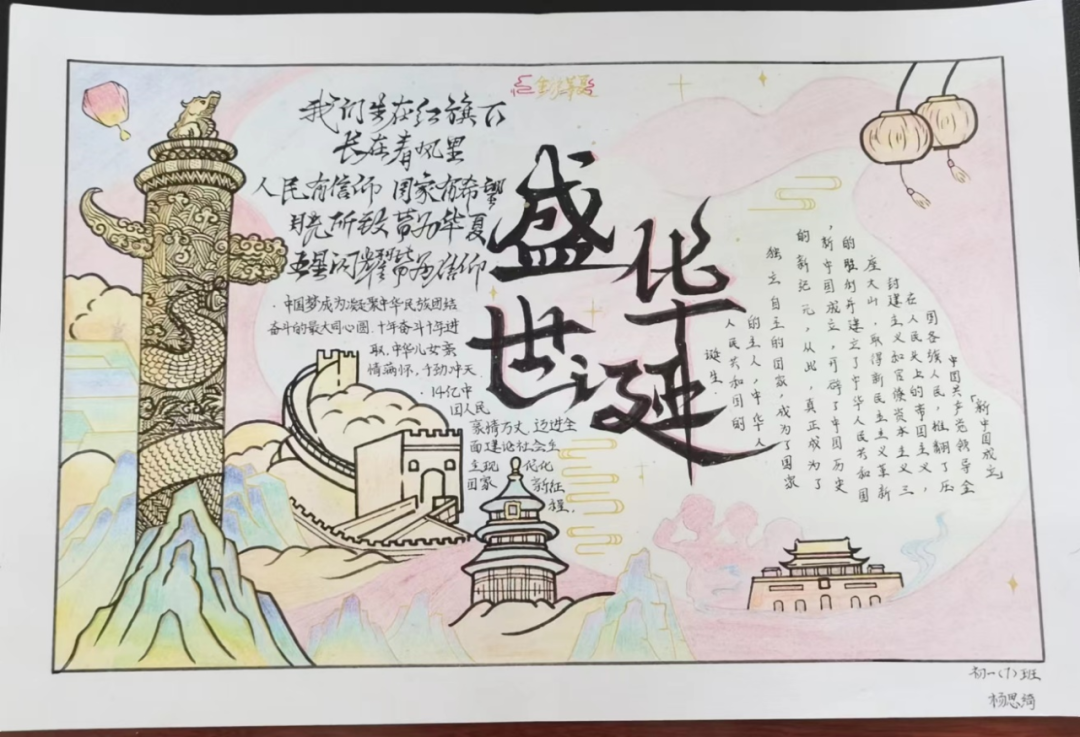 我们生在红旗下
长在春风里
人民有信仰 国家有希望
目光所致 皆为华夏
五星闪耀皆为信仰
盛世
华诞
·中国梦成为凝聚中华民族团结
奋斗的最大同心圆.十年奋斗十年进
取.中华儿女豪
情满怀,干劲冲天.
·14亿中
国人民
豪情万丈,迈进全
面建论社会主
主现代化
国家新征
程.
「新中国成立」
中国共产党领导全
国各族人民,推翻了压
在人民头上的帝国主义,
封建主义和官僚资本主义三
座大山,取得新民主主义革新
的胜利并建立了中华人民共和国
,新中国成立,开辟了中国历史
的新纪元,从此,真正成为了
独立自主的国家,成为了国家
的主人,中华人
人民共和国的
诞生.
初一(7)班
杨思绮